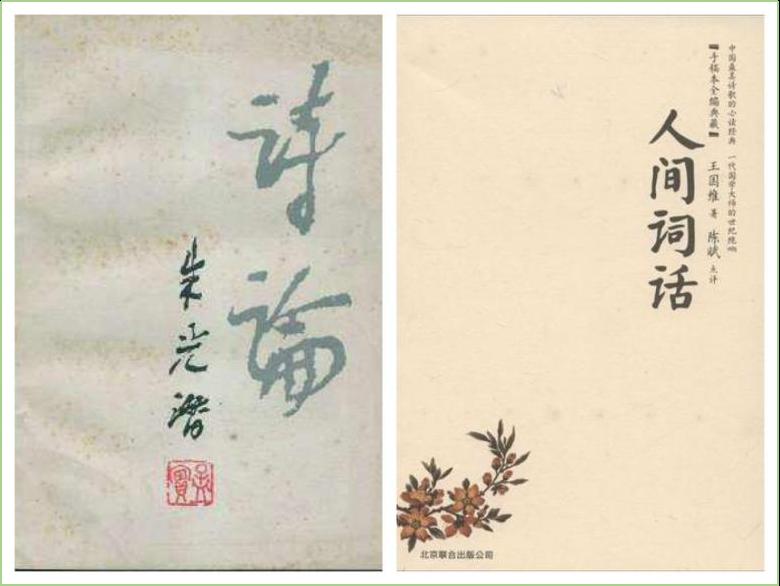 詩論
朱光潜
中国最美诗歌的心读经典 一代国学大师的世纪绝响
【手稿本全编典藏】
王国维 著 陈斌 点评
人间词话
北京联合出版公司